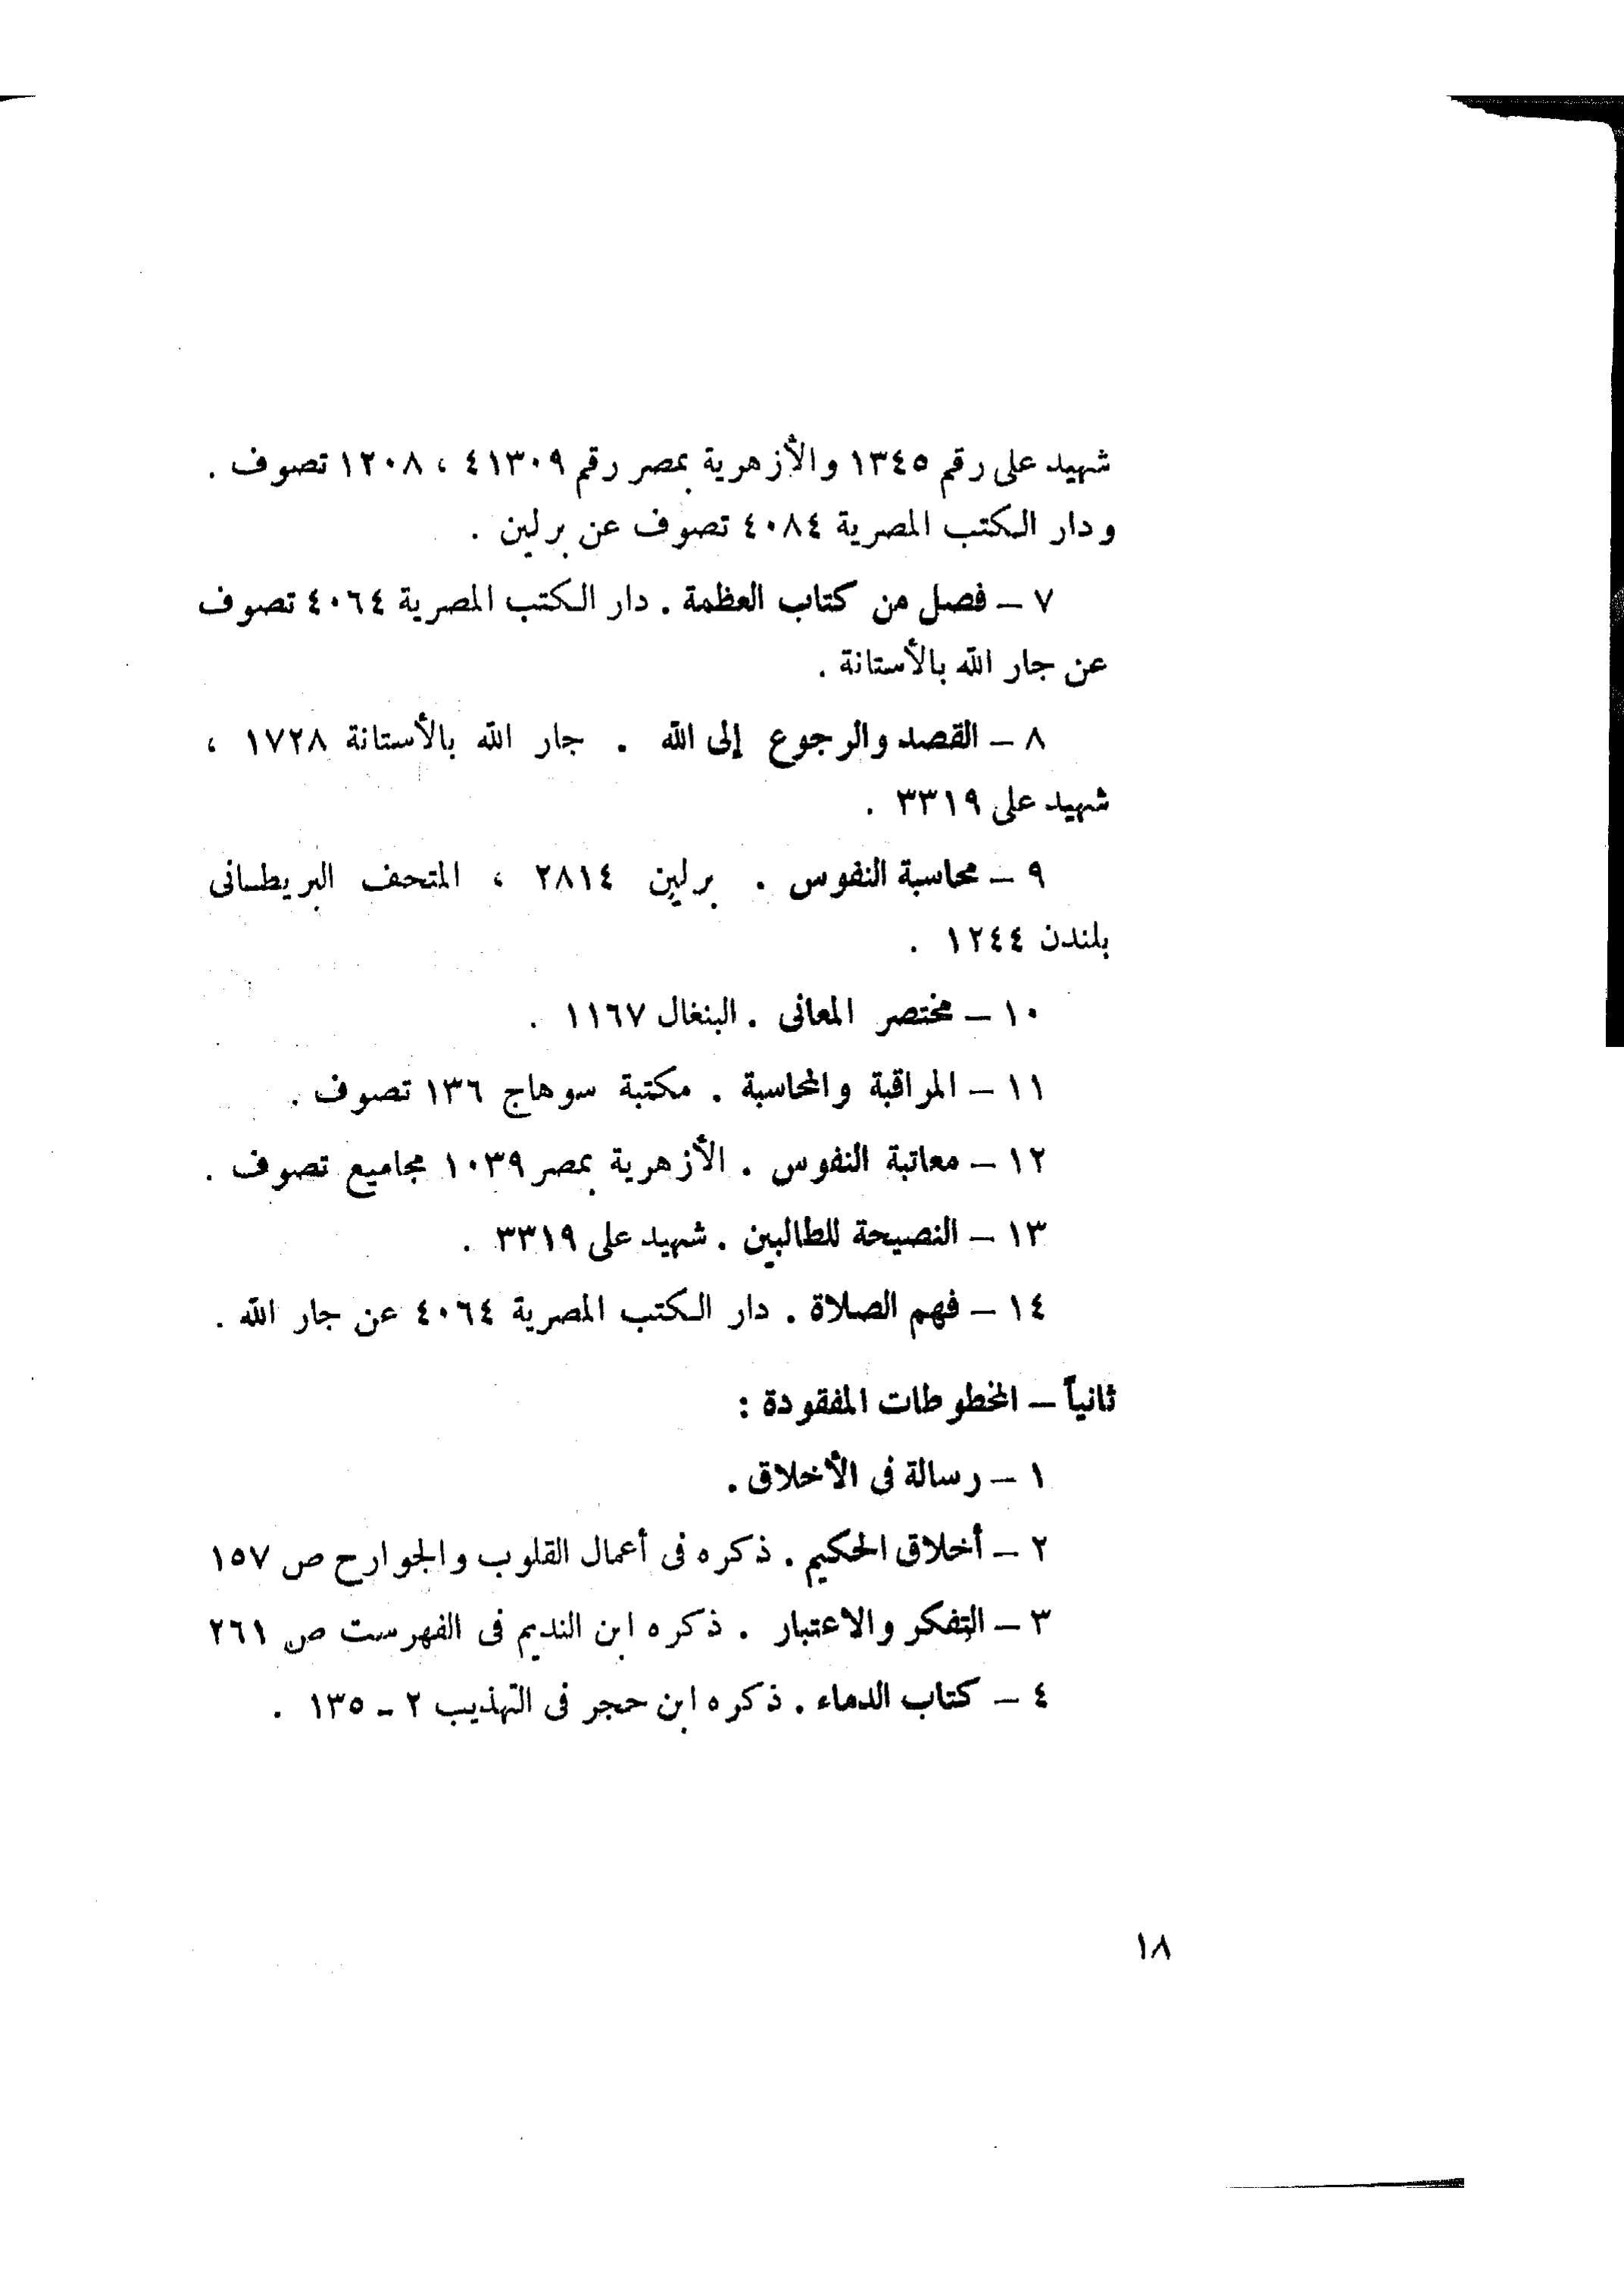 شهيد على رقم ١٣٤٥ والأزهرية بمصر رقم ٤١٣٠٩ ، ١٢٠٨ تصوف .
ودار الكتب المصرية ٤٠٨٤ تصوف عن برلين .
٧ – فصل من كتاب العظمة . دار الكتب المصرية ٤٠٦٤ تصوف
عن جار الله بالأستانة .
٨ – القصد والرجوع إلى الله . جار الله بالأستانة ١٧٢٨ ،
شهيد على ٣٣١٩ .
٩ – محاسبة النفوس . برلين ٢٨١٤ ، المتحف البريطانى
بلندن ١٢٤٤ .
١٠ – مختصر المعانى . البنغال ١١٦٧ .
١١ – المراقبة والمحاسبة . مكتبة سوهاج ١٣٦ تصوف .
١٢ – معاتبة النفوس . الأزهرية بمصر ١٠٣٩ مجاميع تصوف .
١٣ – النصيحة للطالبين . شهيد على ٣٣١٩ .
١٤ – فهم الصلاة . دار الكتب المصرية ٤٠٦٤ عن جار الله .
ثانياً – المخطوطات المفقودة :
١ – رسالة فى الأخلاق .
٢ – أخلاق الحكيم . ذكره فى أعمال القلوب والجوارح ص ١٥٧
٣ – التفكر والاعتبار . ذكره ابن النديم فى الفهرست ص ٢٦١
٤ – كتاب الدماء . ذكره ابن حجر فى التهذيب ٢ - ١٣٥ .
١٨